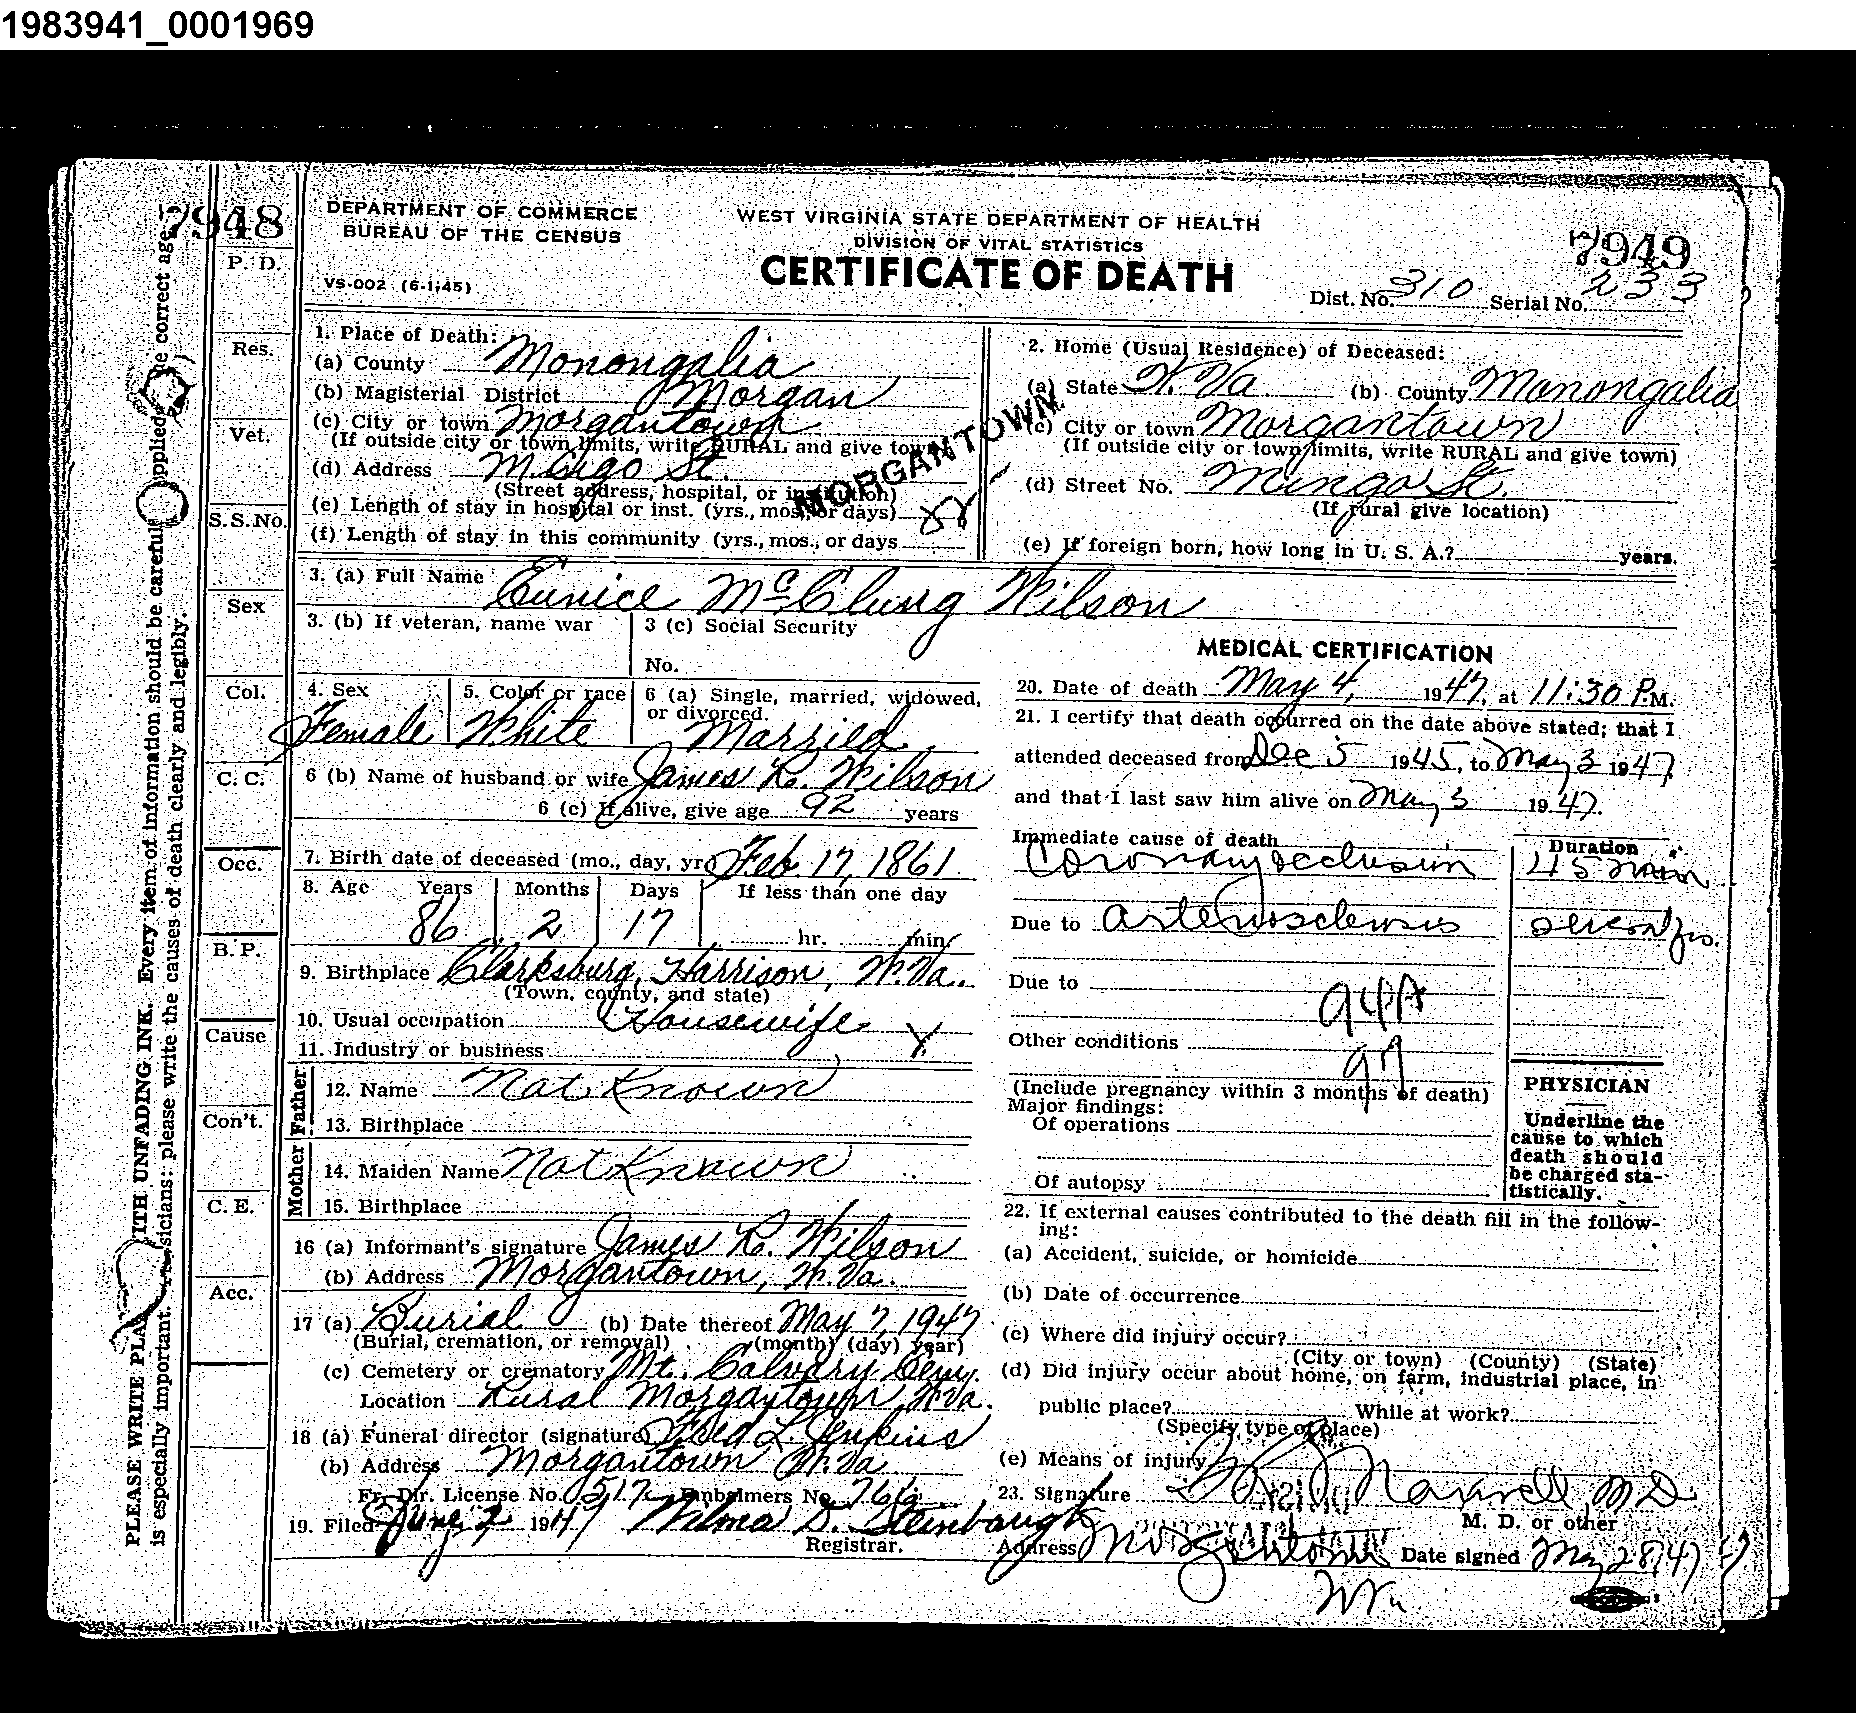 1983941_0001969
7948
DEPARTMENT OF COMMERCE
BUREAU OF THE CENSUS
VS-002 (6-1-45)
WEST VIRGINIA STATE DEPARTMENT OF HEALTH
DIVISION OF VITAL STATISTICS
CERTIFICATE OF DEATH
7949
Dist. No. 310 Serial No. 233
PLEASE WRITE PLAI WITH UNFADING INK. Every item of information should be carefull applied. e correct age
is especially important. sicians: please write the causes of death clearly and legibly.
P. D.
Res.
Vet.
S.S.No.
Sex
Col.
C. C.
Occ.
B. P.
Cause
Con't.
C. E.
Acc.
1. Place of Death:
(a) County Monongalia
(b) Magisterial District Morgan
(c) City or town Morgantown
(If outside city or town limits, write RURAL and give town)
(d) Address Mingo St.
(Street address, hospital, or institution)
(e) Length of stay in hospital or inst. (yrs., mos., or days)
(f) Length of stay in this community (yrs., mos., or days
MORGANTOWN
2. Home (Usual Residence) of Deceased:
(a) State W. Va. (b) County Monongalia
(c) City or town Morgantown
(If outside city or town limits, write RURAL and give town)
(d) Street No. Mingo St.
(If rural give location)
(e) If foreign born, how long in U. S. A.? years.
3. (a) Full Name Eunice McClung Wilson
3. (b) If veteran, name war
3 (c) Social Security
No.
4. Sex Female
5. Color or race White
6 (a) Single, married, widowed,
or divorced. Married
6 (b) Name of husband or wife James R. Wilson
6 (c) If alive, give age 92 years
7. Birth date of deceased (mo., day, yr.) Feb. 17, 1861
8. Age Years Months Days If less than one day
86 2 17 hr. min.
9. Birthplace Clarksburg, Harrison, W. Va.
(Town, county, and state)
10. Usual occupation Housewife X
11. Industry or business
Father
12. Name Not Known
13. Birthplace
Mother
14. Maiden Name Not Known
15. Birthplace
16 (a) Informant's signature James R. Wilson
(b) Address Morgantown, W. Va.
17 (a) Burial (b) Date thereof May 7, 1947
(Burial, cremation, or removal) (month) (day) year)
(c) Cemetery or crematory Mt. Calvary Cem.
Location Rural Morgantown, W. Va.
18 (a) Funeral director (signature) Fred L. Jenkins
(b) Address Morgantown W. Va
Fr. Dir. License No. 517 Embalmers No.
19. Filed June 2 1947 Wilma D. Steinbaugh
Registrar.
MEDICAL CERTIFICATION
20. Date of death May 4, 1947, at 11:30 P.M.
21. I certify that death occurred on the date above stated; that I
attended deceased from Dec 5 1945, to May 3 1947
and that I last saw him alive on May 3 1947.
Immediate cause of death
Coronary occlusion
Duration
45 min
Due to arteriosclerosis several yrs.
Due to
94A
Other conditions
97
(Include pregnancy within 3 months of death)
Major findings:
Of operations
Of autopsy
PHYSICIAN
Underline the
cause to which
death should
be charged sta-
tistically.
22. If external causes contributed to the death fill in the follow-
ing:
(a) Accident, suicide, or homicide
(b) Date of occurrence
(c) Where did injury occur?
(City or town) (County) (State)
(d) Did injury occur about home, on farm, industrial place, in
public place? While at work?
(Specify type of place)
(e) Means of injury
23. Signature Maxwell MD
M. D. or other
Address Morgantown Date signed May 28, 47
W Va